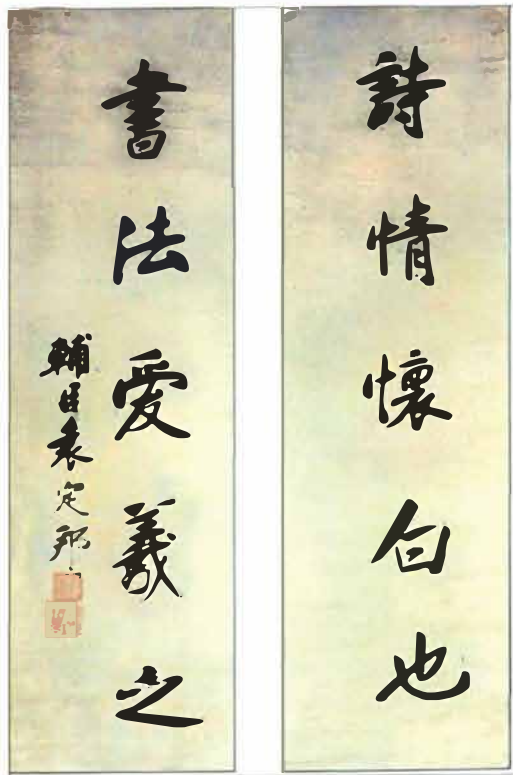 詩情懷白也
書法愛羲之
輔臣袁定